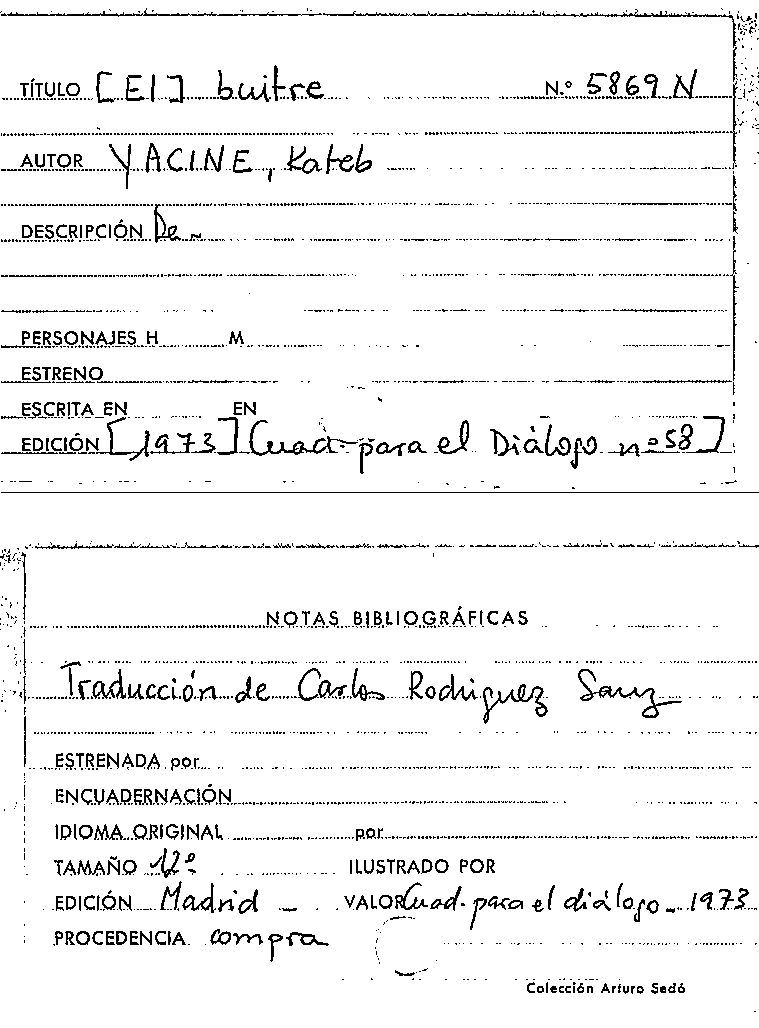 TÍTULO [El] buitre N.º 5869 N
AUTOR YACINE, Kateb
DESCRIPCIÓN De ~
PERSONAJES H M
ESTRENO
ESCRITA EN EN
EDICIÓN [1973] Cuad. para el Diálogo nº 58]
NOTAS BIBLIOGRÁFICAS
Traducción de Carlos Rodriguez Sanz
ESTRENADA por
ENCUADERNACIÓN
IDIOMA ORIGINAL por
TAMAÑO 12º ILUSTRADO POR
EDICIÓN Madrid – VALOR Cuad. para el diálogo – 1973
PROCEDENCIA compra
Colección Arturo Sedó